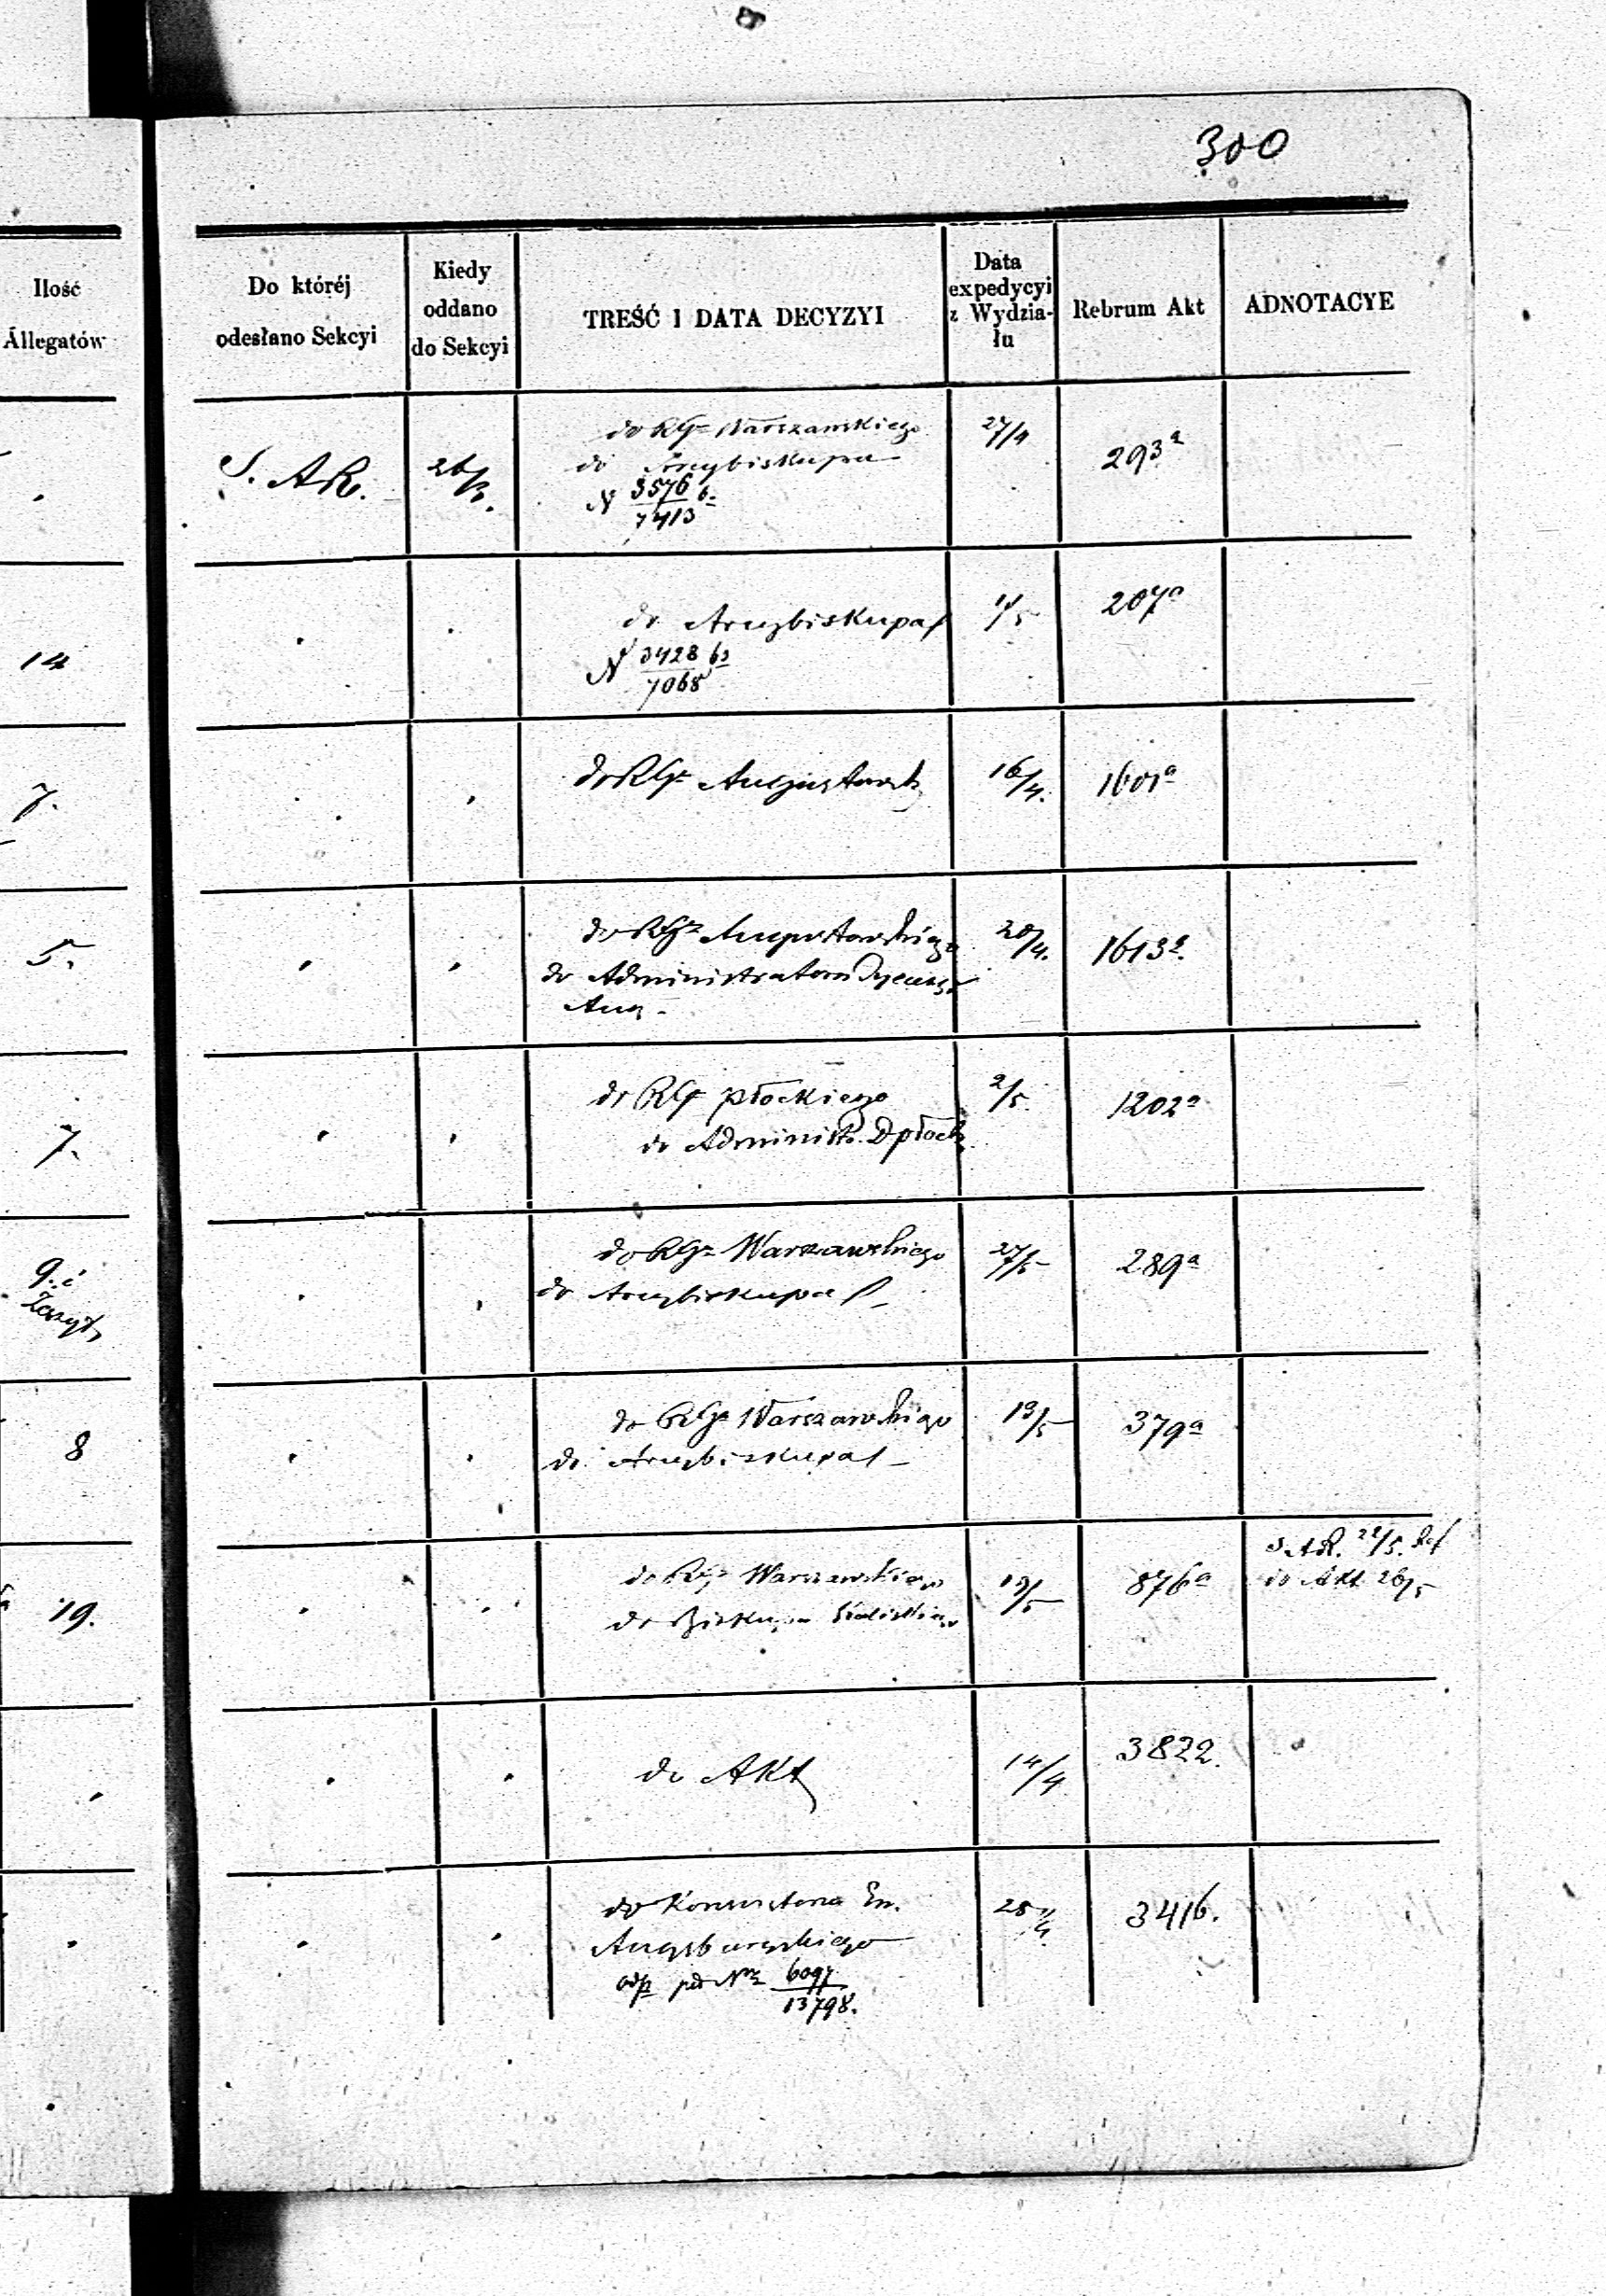 300
Ilość
Allegatów
Do któréj
odesłano Sekcyi
Kiedy
oddano
do Sekcyi
TREŚĆ I DATA DECYZYI
Data
expedycyi
z Wydzia-
łu
Rebrum Akt
ADNOTACYE
S. AR.
26/3.
do RGr Warszawskiego
do Arcybiskupa
N 3576/7413
27/4
293a
14
do Arcybiskupa
N 3428/7068
11/5
207a
7.
do RGr Augustowsk
16/4.
1601a
5.
do RGr Augustowskiego
do Administratora Dyecezyi
Aug.
20/4.
1613a.
7.
do RGr Płockiego
do Administr. D płock
2/5.
1202a
9. i
Zeszyt
do RGr Warszawskiego
do Arcybiskupa
27/5
289a
8
do RGr Warszawskiego
do Arcybiskupa
19/5
379a
19.
do RGr Warszawskiego
do Biskupa Kaliskiego
19/5
876a
S. AR. 22/5.
do Akt 26/5
do Akt
14/4
3822.
do Konsystorza Ew.
Augsburgskiego
odp pod Nrm 6097/13798.
28/4
3416.